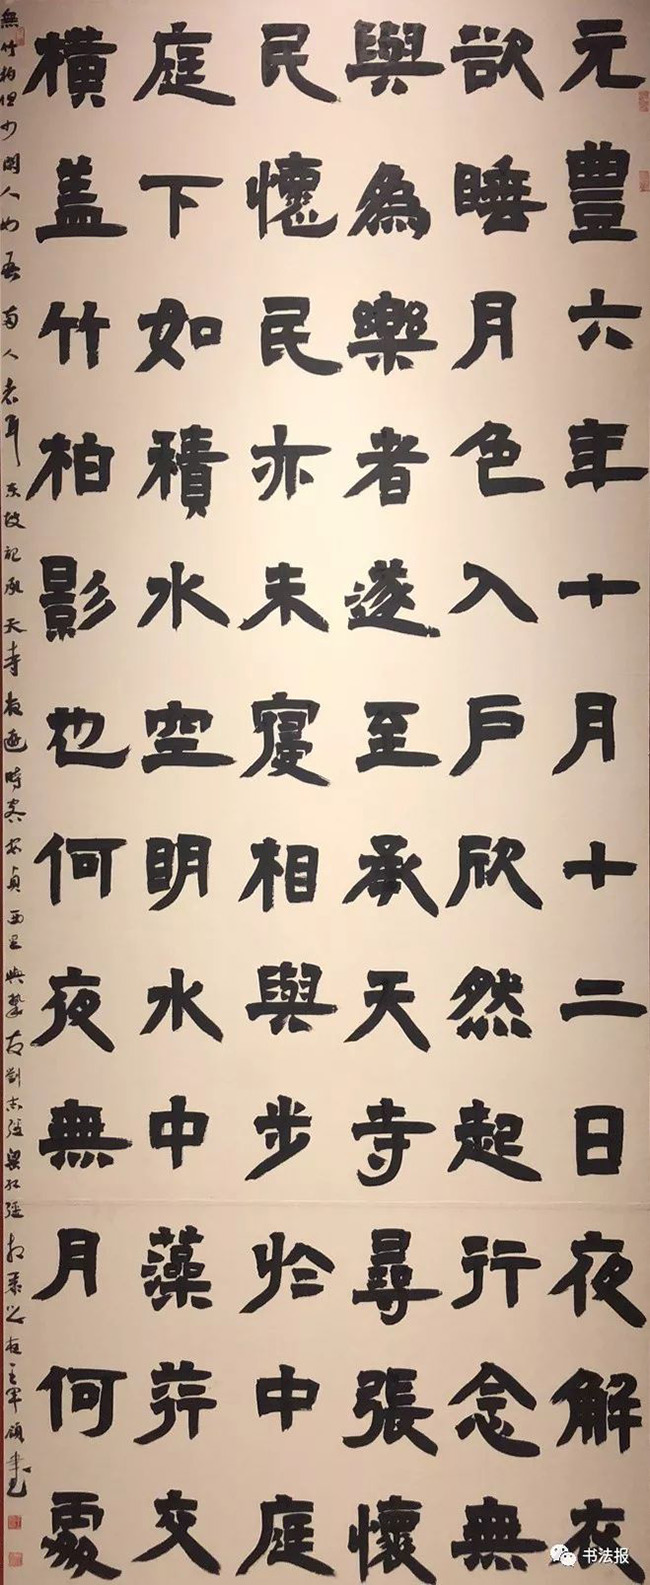 元豐六年十月十二日夜解衣
欲睡月色入户欣然起行念無
與為樂者遂至承天寺尋張懷
民懷民亦未寢相與步於中庭
庭下如積水空明水中藻荇交
橫盖竹柏影也何夜無月何處
無竹柏但少閑人如吾兩人者耳 东坡記承天寺夜遊時客安貞西里與摯友劉志强梁红强
书法报